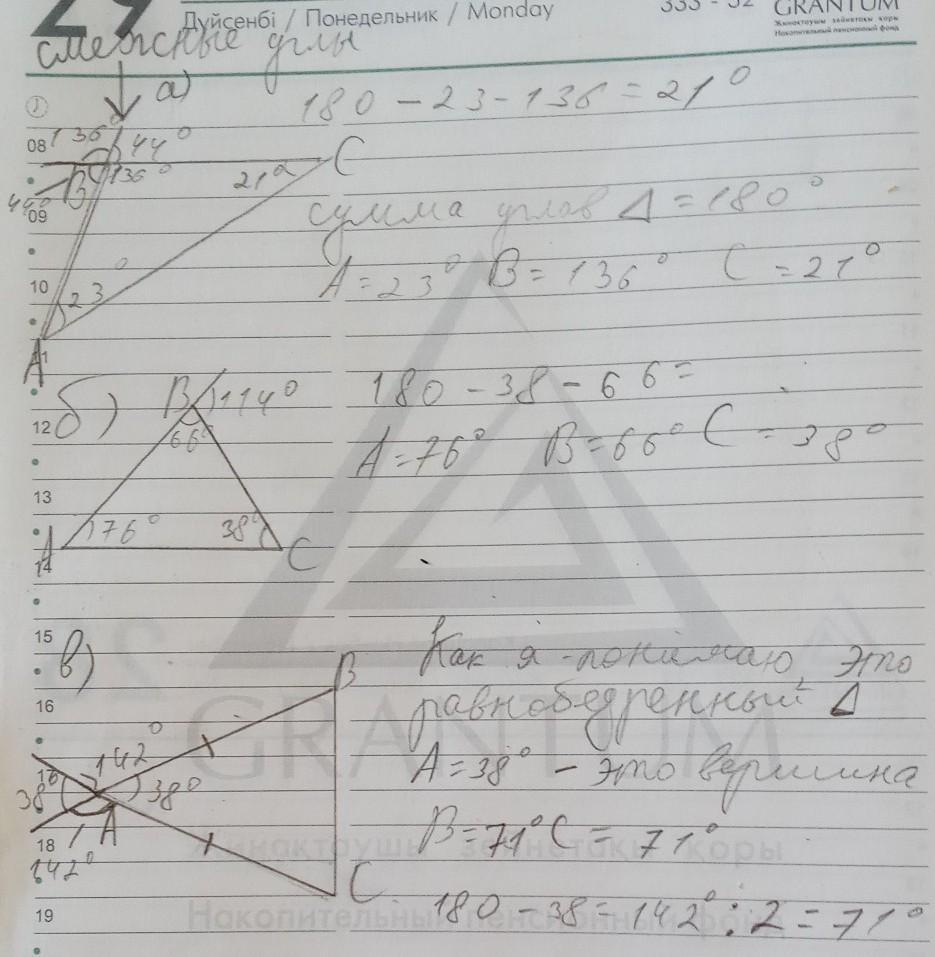 29
Дүйсенбі / Понедельник / Monday
333 - 32
GRANTUM
Жинақтаушы зейнетақы қоры
Накопительный пенсионный фонд
смежные углы
а)
180 - 23 - 136 = 21°
08
136
44°
B
136°
21°
C
44°
09
сумма углов Δ = 180°
10
23°
A = 23° B = 136° C = 21°
A
б)
B
114°
180 - 38 - 66 =
12
66°
A = 76° B = 66° C = 38°
13
A
76°
38°
C
14
15
в)
B
Как я понимаю, это
16
равнобедренный Δ
142°
A = 38° - это вершина
38°
38°
A
B = 71° C = 71°
18
142°
C
180 - 38 = 142° : 2 = 71°
19
GRANTUM
Жинақтаушы зейнетақы қоры
Накопительный пенсионный фонд